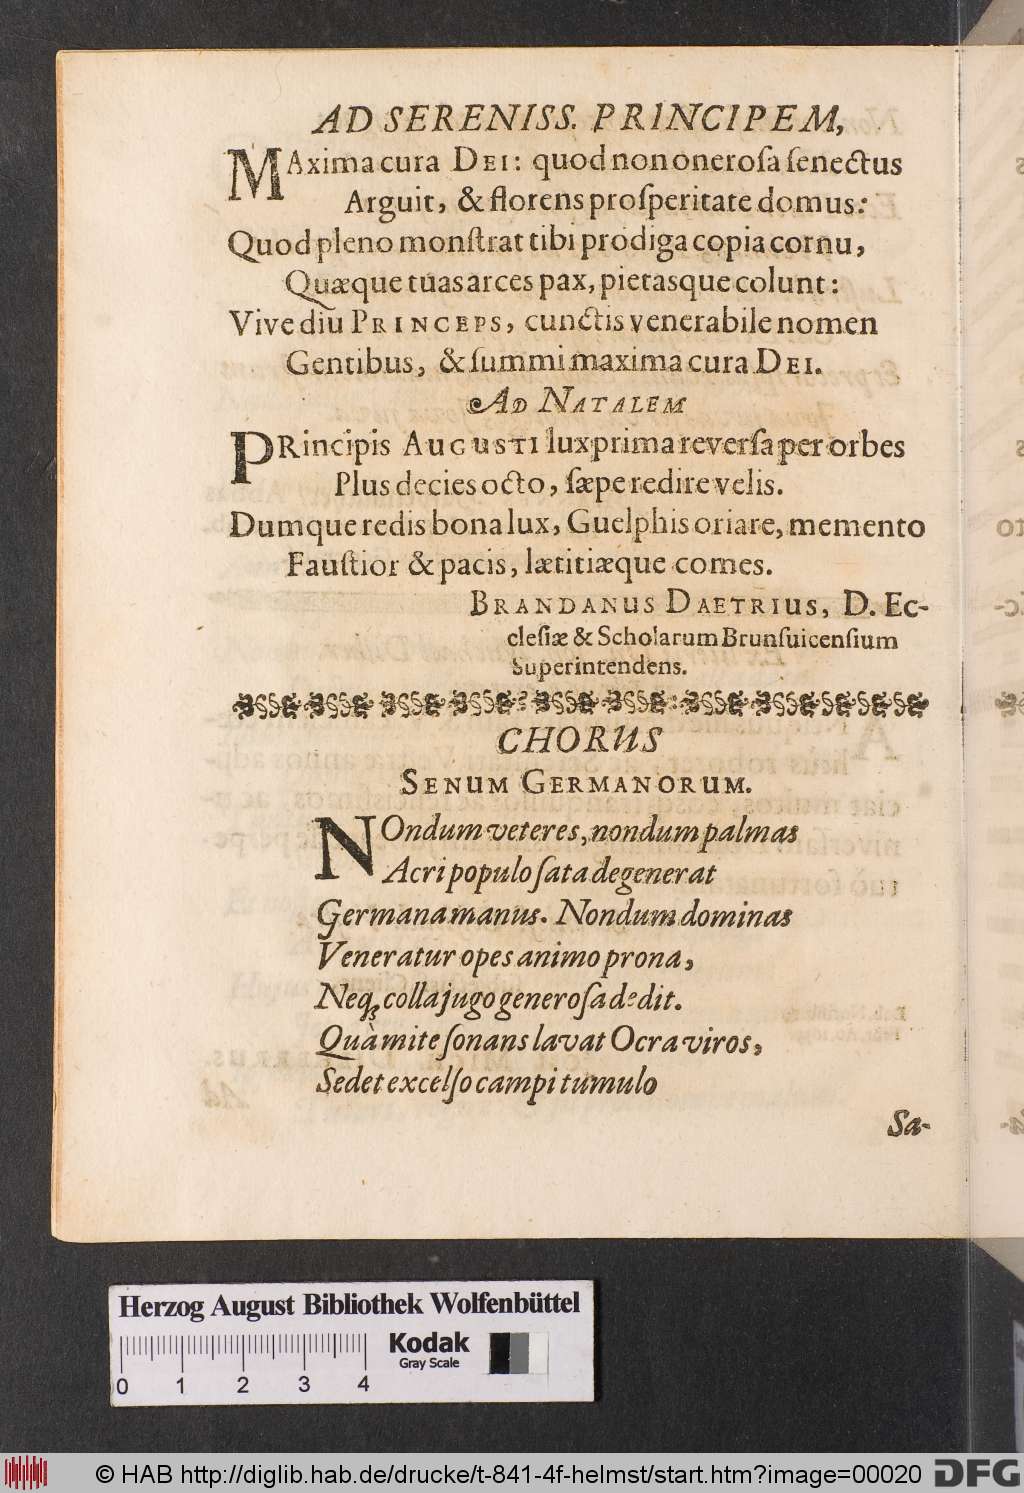 AD SERENISS. PRINCIPEM,
MAxima cura DEI: quod non oneroſa ſenectus
Arguit, & florens proſperitate domus:
Quod pleno monſtrat tibi prodiga copia cornu,
Quæque tuas arces pax, pietasque colunt:
Vive diu PRINCEPS, cunctis venerabile nomen
Gentibus, & ſummi maxima cura DEI.
AD NATALEM
PRincipis AUGUSTI lux prima reverſa per orbes
Plus decies octo, ſæpe redire velis.
Dumque redis bona lux, Guelphis oriare, memento
Fauſtior & pacis, lætitiæque comes.
BRANDANUS DAETRIUS, D. Ec-
cleſiæ & Scholarum Brunſuicenſium
Superintendens.
CHORUS
SENUM GERMANORUM.
NOndum veteres, nondum palmas
Acri populo ſata degenerat
Germana manus. Nondum dominas
Veneratur opes animo prona,
Neq; colla jugo generoſa dedit.
Quà mite ſonans lavat Ocra viros,
Sedet excelſo campi tumulo
Sa-
Herzog August Bibliothek Wolfenbüttel
Kodak
Gray Scale
0 1 2 3 4
© HAB http://diglib.hab.de/drucke/t-841-4f-helmst/start.htm?image=00020
DFG